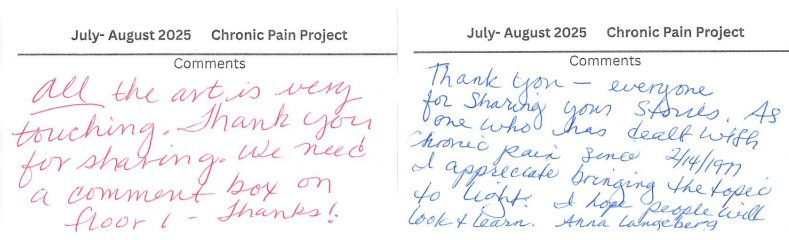 July- August 2025 Chronic Pain Project
Comments
All the art is very
touching. Thank you
for sharing. We need
a comment box on
floor 1 - Thanks!
July- August 2025 Chronic Pain Project
Comments
Thank you — everyone
for sharing your stories. As
one who has dealt with
Chronic Pain since 2/14/1977
I appreciate bringing the topic
to light! I hope people will
look & learn. Anna Langeberg